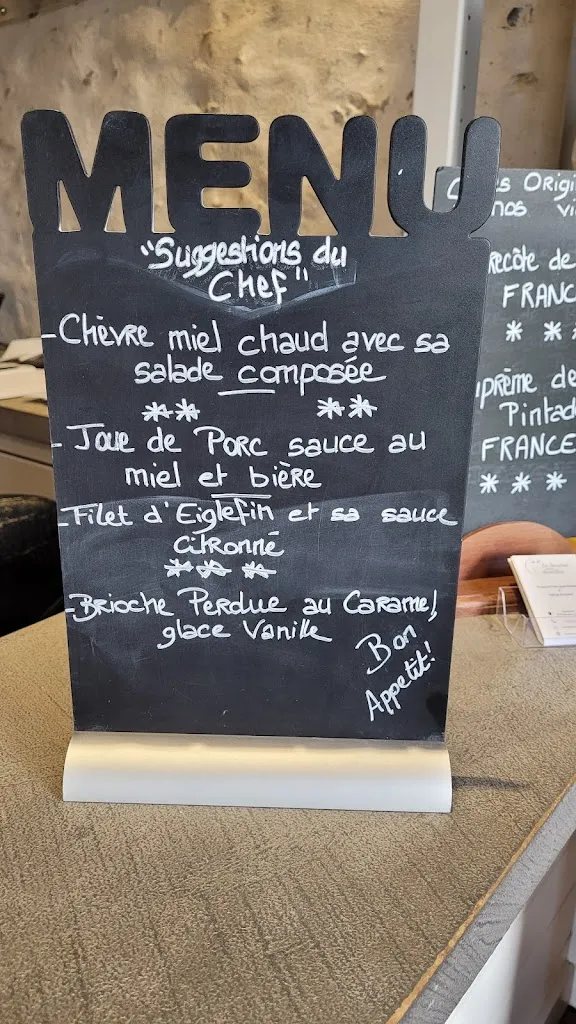 MENU
"Suggestions du
Chef"
-Chèvre miel chaud avec sa
salade composée
** **
- Joue de Porc sauce au
miel et bière
-Filet d'Eiglefin et sa sauce
citronné
***
-Brioche Perdue au Caramel,
glace Vanille
Bon
Appetit!
Origi
nos vi
de
FRANC
* * *
de
Pintad
FRANCE
* * *